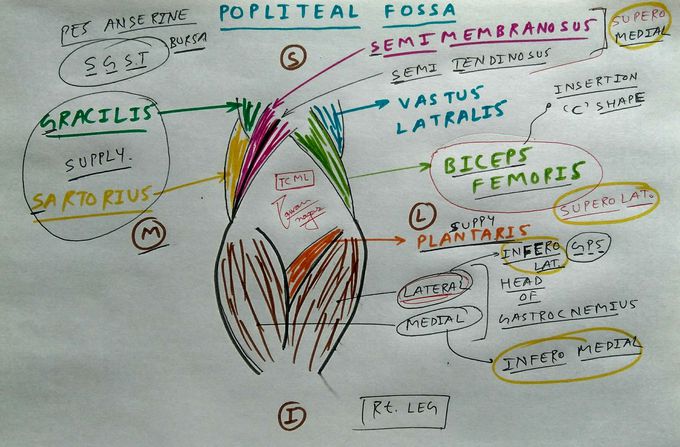 POPLITEAL FOSSA
PES ANSERINE
BURSA
SGST
S
SEMIMEMBRANOSUS
SEMI TENDINOSUS
SUPERO
MEDIAL
GRACILIS
SUPPLY.
SARTORIUS
M
VASTUS
LATRALIS
INSERTION
'C' SHAPE
BICEPS
FEMORIS
SUPEROLAT.
TCML
L
SUPPY
PLANTARIS
INFERO
LAT.
GPS
LATERAL
MEDIAL
HEAD
OF
GASTROCNEMIUS
INFERO MEDIAL
I
Rt. LEG